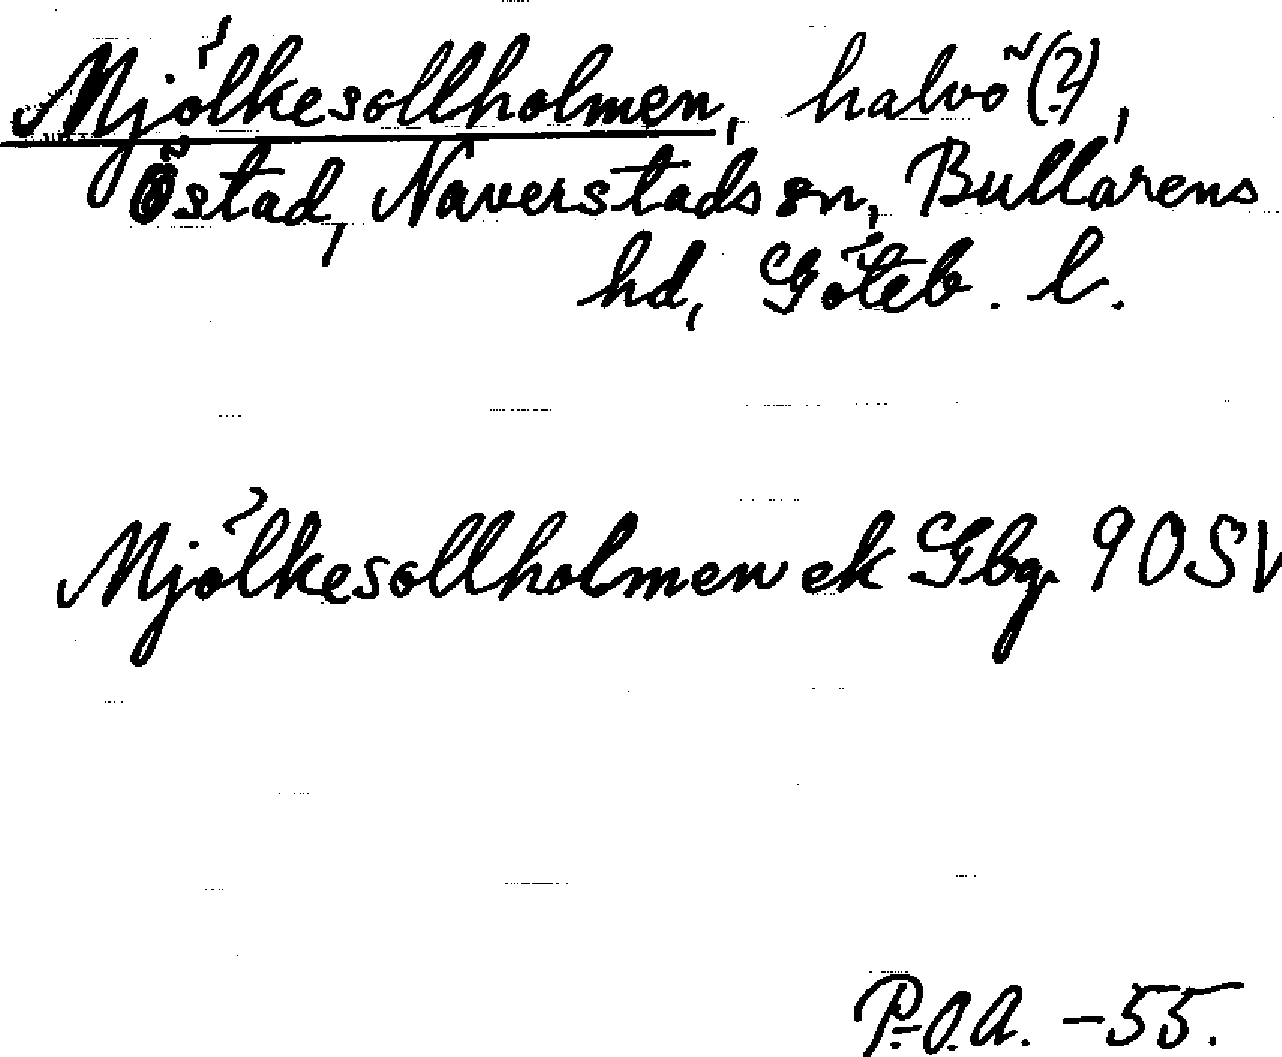 Mjölkesollholmen, halvö(?),
Östad, Naverstads sn, Bullarens
hd, Göteb. l.
Mjölkesollholmen ek Gbg 90SV
P.O.A. -55.